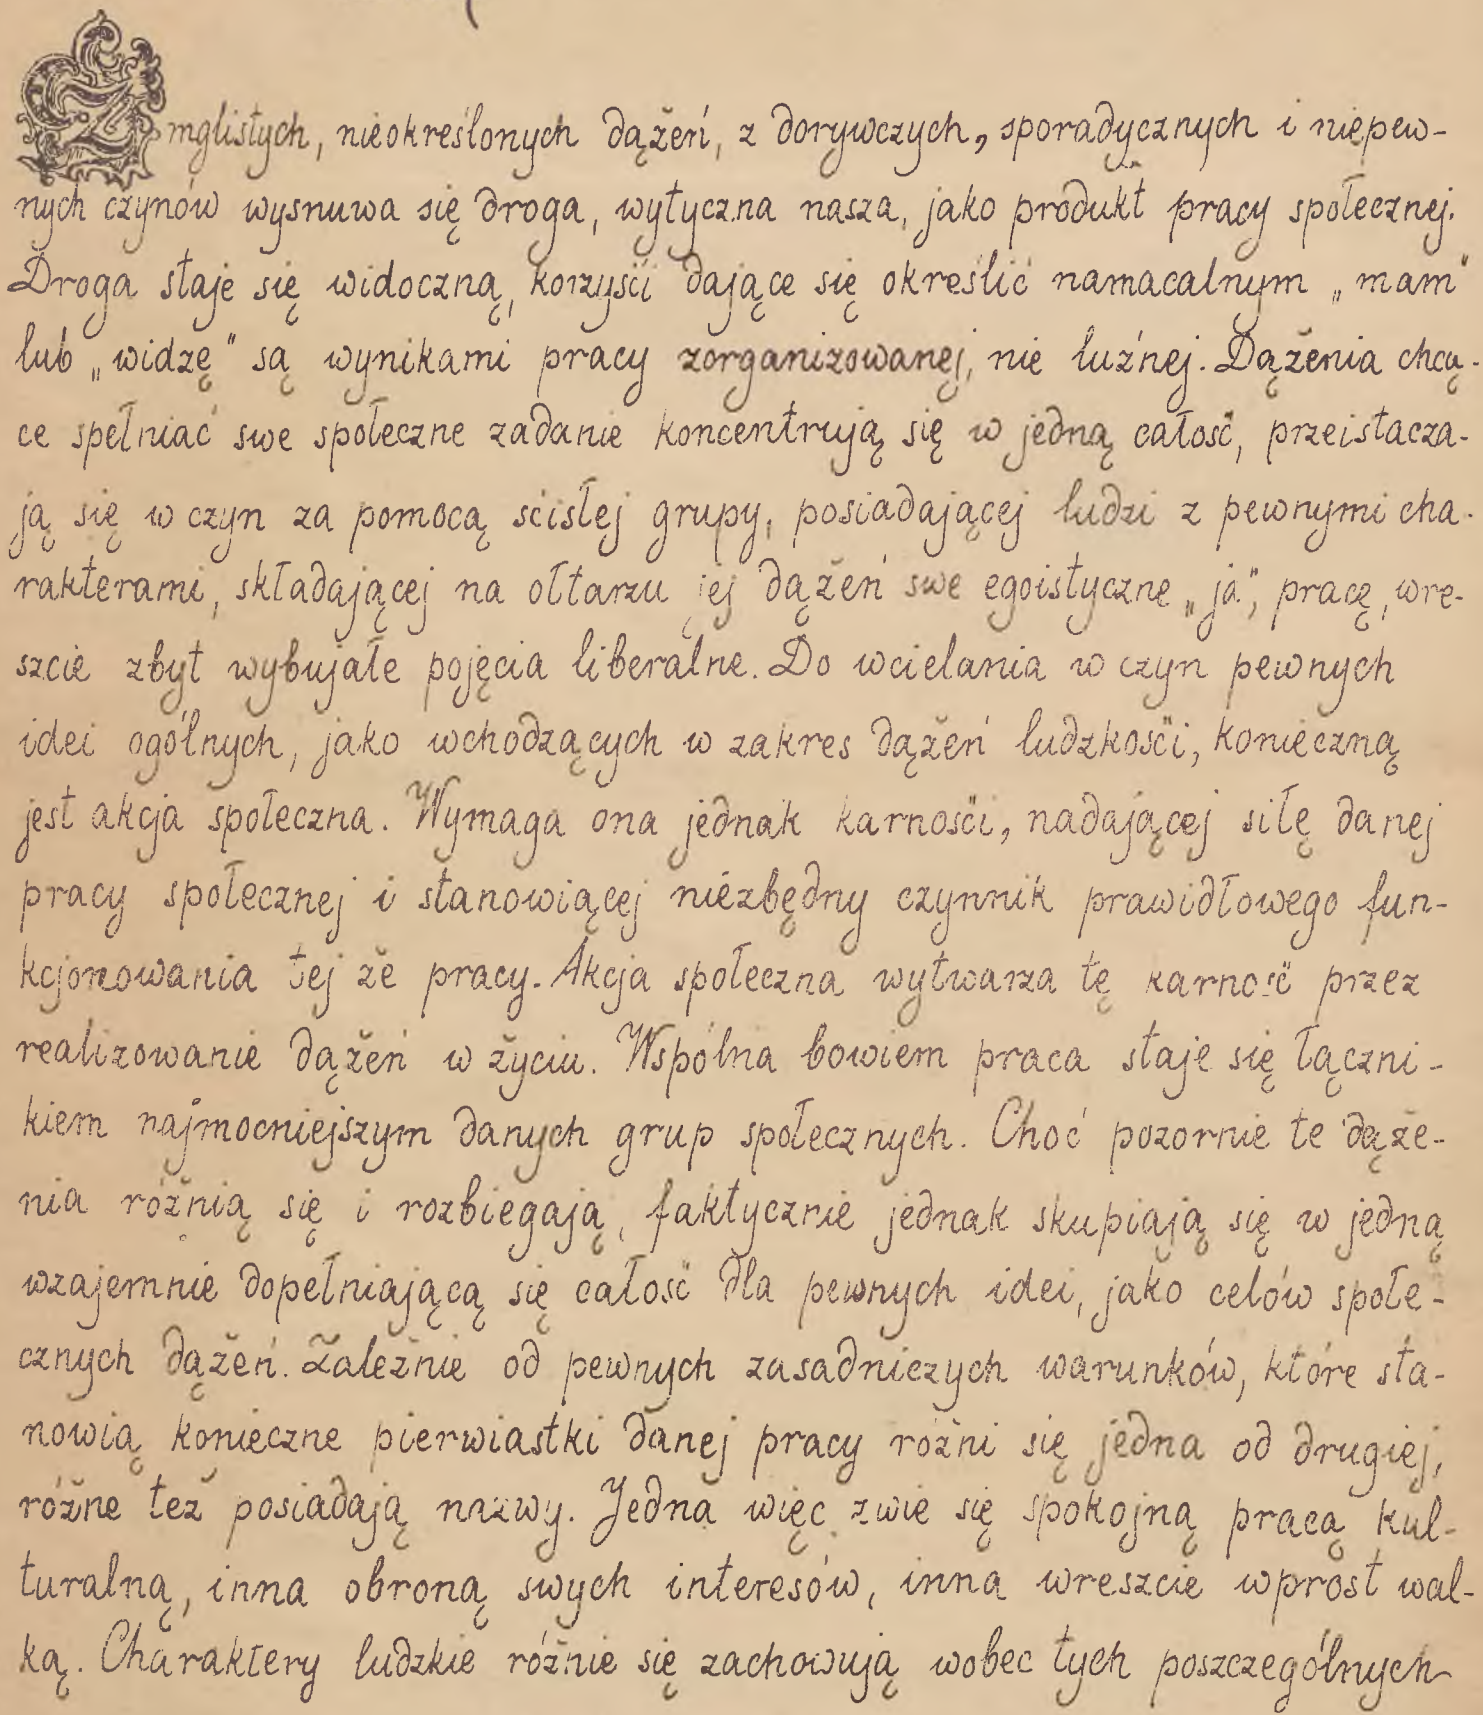 Z mglistych, nieokreślonych dążeń, z dorywczych, sporadycznych i niepew-
nych czynów wysnuwa się droga, wytyczna nasza, jako produkt pracy społecznej.
Droga staje się widoczną, korzyści dające się określić namacalnym „mam"
lub „widzę" są wynikami pracy zorganizowanej, nie luźnej. Dążenia chcą-
ce spełniać swe społeczne zadanie koncentrują się w jedną całość, przeistacza-
ją się w czyn za pomocą ścisłej grupy, posiadającej ludzi z pewnymi cha-
rakterami, składającej na ołtarzu jej dążeń swe egoistyczne „ja", pracę, wre-
szcie zbyt wybujałe pojęcia liberalne. Do wcielania w czyn pewnych
idei ogólnych, jako wchodzących w zakres dążeń ludzkości, konieczną
jest akcja społeczna. Wymaga ona jednak karności, nadającej siłę danej
pracy społecznej i stanowiącej niezbędny czynnik prawidłowego fun-
kcjonowania tej że pracy. Akcja społeczna wytwarza tę karność przez
realizowanie dążeń w życiu. Wspólna bowiem praca staje się łączni-
kiem najmocniejszym danych grup społecznych. Choć pozornie te dąże-
nia różnią się i rozbiegają, faktycznie jednak skupiają się w jedną
wzajemnie dopełniającą się całość dla pewnych idei, jako celów społe-
cznych dążeń. Zależnie od pewnych zasadniczych warunków, które sta-
nowią konieczne pierwiastki danej pracy różni się jedna od drugiej,
różne też posiadają nazwy. Jedna więc zwie się spokojną pracą kul-
turalną, inna obroną swych interesów, inna wreszcie wprost wal-
ką. Charaktery ludzkie różnie się zachowują wobec tych poszczególnych